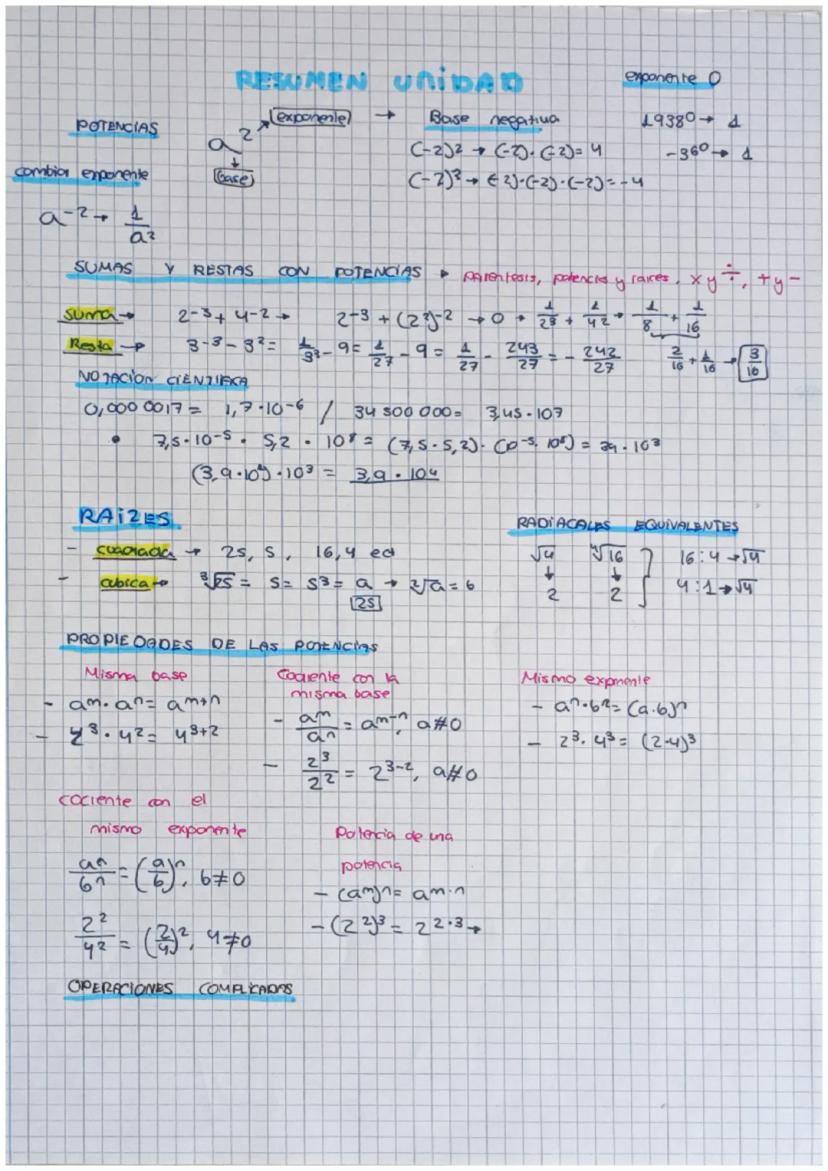 RESUMEN UNIDAD
exponente 0
POTENCIAS
a² exponente → Base negativa
base
1938⁰ → 1
(-2)² → (-2)·(-2)= 4
-36⁰ → 1
(-2)³ → (-2)·(-2)·(-2)= -4
cambiar exponente
a⁻² → 1/a²
SUMAS Y RESTAS CON POTENCIAS → parentesis, potencias y raices, x y ÷, + y -
Suma → 2⁻³ + 4⁻² → 2⁻³ + (2²)⁻² → 0 → 1/2³ + 1/4² → 1/8 + 1/16
Resta → 3⁻³ - 3² = 1/3³ - 9 = 1/27 - 9 = 1/27 - 243/27 = - 242/27
2/16 + 1/16 → 3/16
NOTACION CIENTIFICA
0,000 0017 = 1,7·10⁻⁶ / 34 500 000 = 3,45·10⁷
• 7,5·10⁻⁵ · 5,2 · 10⁸ = (7,5·5,2)·(10⁻⁵·10⁸) = 39·10³
(3,9·10¹)·10³ = 3,9·10⁴
RAÍZES
- cuadrada → 25, 5, 16,4 ect
- cubica → ³√25 = 5 = 5³ = a → ²√a = 6
25
RADIACALES EQUIVALENTES
√4 ⁴√16 16:4 → √4
↓ ↓
2 2 4:1 → √4
PROPIEDADES DE LAS POTENCIAS
Misma base
- aᵐ·aⁿ = aᵐ⁺ⁿ
- 4³·4² = 4³⁺²
Cociente con la
misma base
- aᵐ/aⁿ = aᵐ⁻ⁿ, a≠0
- 2³/2² = 2³⁻², a≠0
Mismo exponente
- aⁿ·bⁿ = (a·b)ⁿ
- 2³·4³ = (2·4)³
cociente con el
mismo exponente
aⁿ/bⁿ = (a/b)ⁿ, b≠0
2²/4² = (2/4)², 4≠0
Potencia de una
potencia
- (aᵐ)ⁿ = aᵐ·ⁿ
- (2²)³ = 2²·³ →
OPERACIONES COMPLICADAS